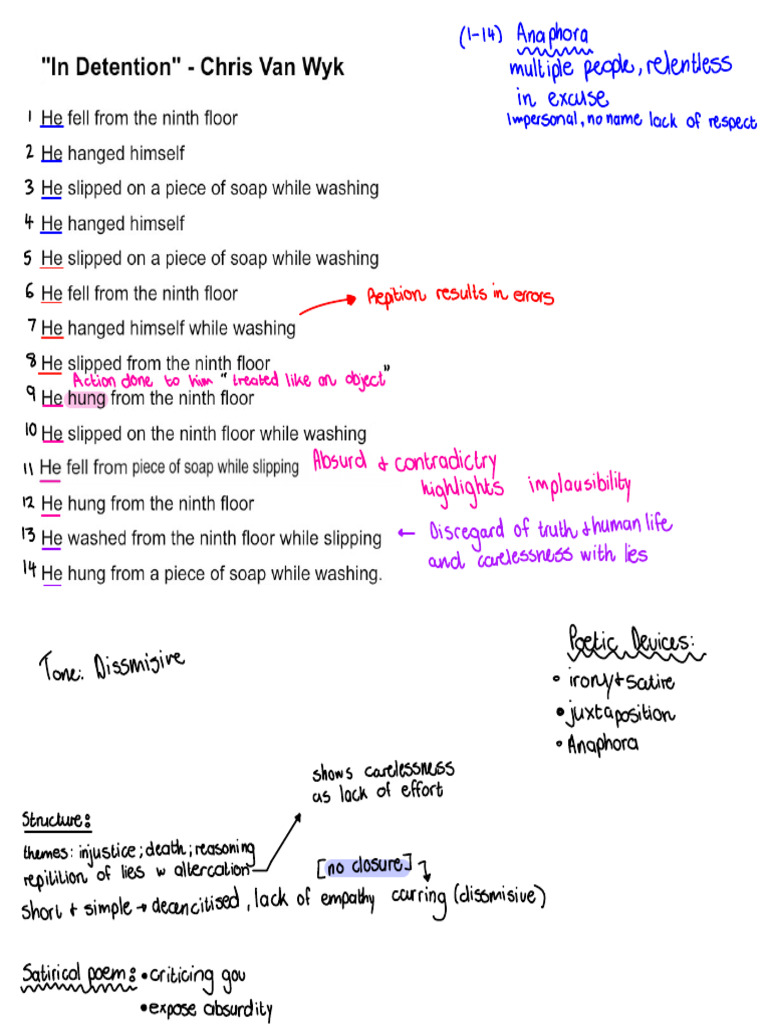 "In Detention" - Chris Van Wyk
(1-14) Anaphora
multiple people, relentless
in excuse
Impersonal, no name lack of respect
1 He fell from the ninth floor
2 He hanged himself
3 He slipped on a piece of soap while washing
4 He hanged himself
5 He slipped on a piece of soap while washing
6 He fell from the ninth floor
Repition results in errors
7 He hanged himself while washing
8 He slipped from the ninth floor
Action done to him "treated like an object"
9 He hung from the ninth floor
10 He slipped on the ninth floor while washing
11 He fell from piece of soap while slipping
Absurd + contradictry
highlights implausibility
12 He hung from the ninth floor
13 He washed from the ninth floor while slipping
← Disregard of truth + human life
and carelessness with lies
14 He hung from a piece of soap while washing.
Tone: Dissmisive
Poetic Devices:
• irony + satire
• juxtaposition
• Anaphora
shows carelessness
as lack of effort
Structure:
themes: injustice; death; reasoning
repilition of lies w altercation
[no closure]
short + simple → decencitised, lack of empathy carring (dissmisive)
Satirical poem: • criticing gov
• expose absurdity